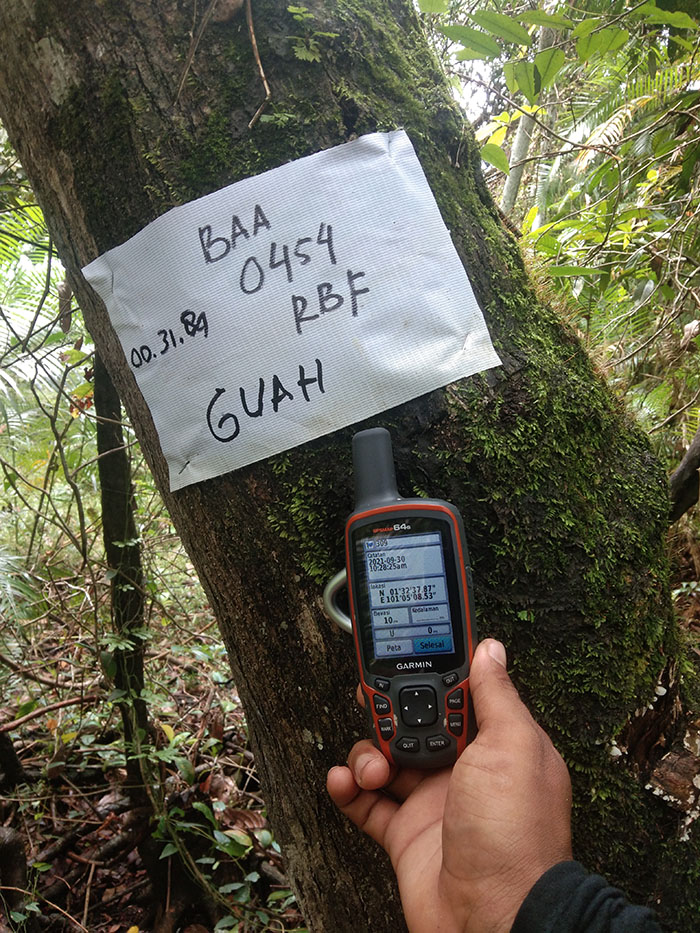 BAA
0454
RBF
00.31.89
GUAH
GPSMAP 64s
309
Catatan
2021-09-30
10:28:25am
Lokasi
N 01°32'37.87"
E 101°05'08.53"
Elevasi
Kedalaman
10m
U
0m
Peta
Selesai
GARMIN
IN
OUT
FIND
PAGE
MARK
MENU
QUIT
ENTER